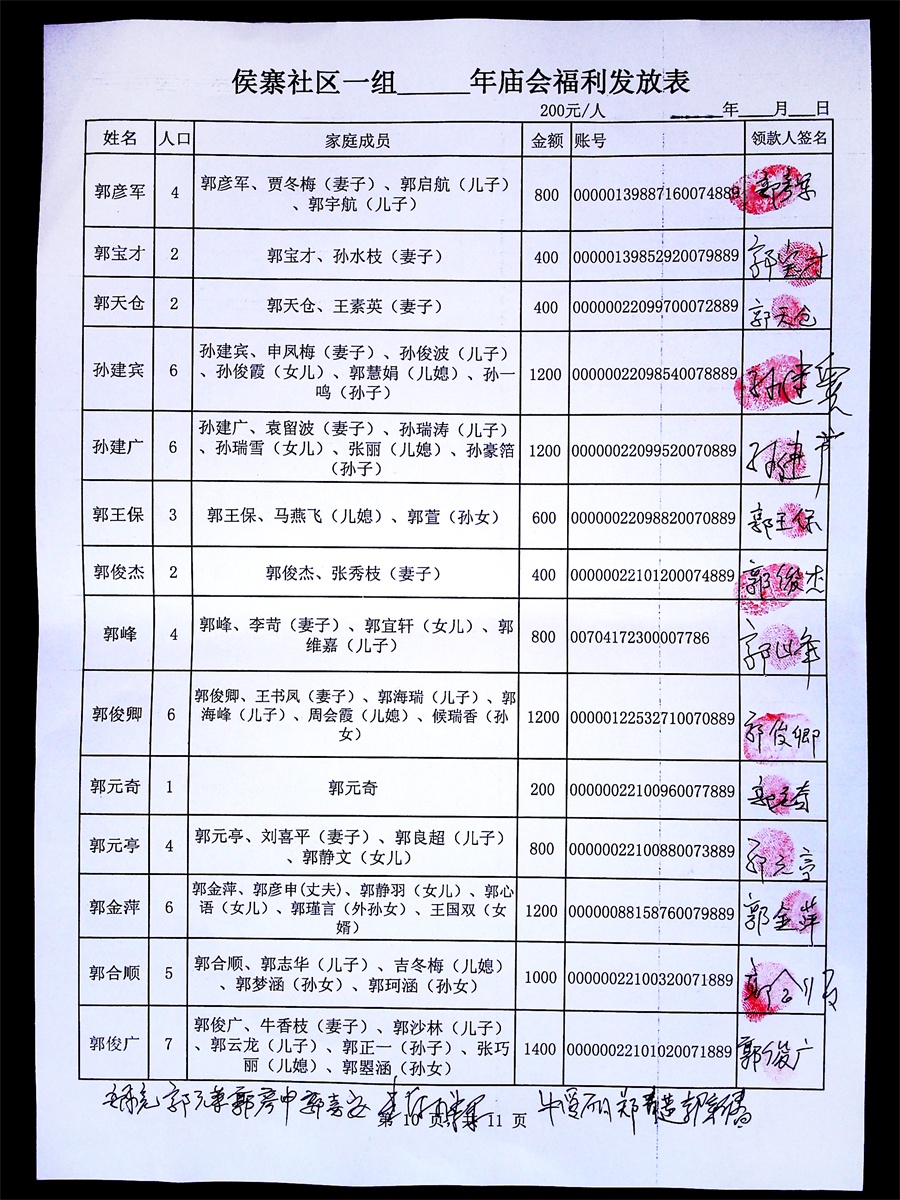 侯寨社区一组_____年庙会福利发放表
200元/人 ____年___月___日
姓名 人口 家庭成员 金额 账号 领款人签名
郭彦军 4 郭彦军、贾冬梅（妻子）、郭启航（儿子）
、郭宇航（儿子） 800 00000139887160074889 郭彦军
郭宝才 2 郭宝才、孙水枝（妻子） 400 00000139852920079889 郭宝才
郭天仓 2 郭天仓、王素英（妻子） 400 00000022099700072889 郭天仓
孙建宾 6 孙建宾、申凤梅（妻子）、孙俊波（儿子）
、孙俊霞（女儿）、郭慧娟（儿媳）、孙一
鸣（孙子） 1200 00000022098540078889 孙建宾
孙建广 6 孙建广、袁留波（妻子）、孙瑞涛（儿子）
、孙瑞雪（女儿）、张丽（儿媳）、孙豪箔
（孙子） 1200 00000022099520070889 孙建广
郭王保 3 郭王保、马燕飞（儿媳）、郭萱（孙女） 600 00000022098820070889 郭王保
郭俊杰 2 郭俊杰、张秀枝（妻子） 400 00000022101200074889 郭俊杰
郭峰 4 郭峰、李苛（妻子）、郭宜轩（女儿）、郭
维嘉（儿子） 800 00704172300007786 郭峰
郭俊卿 6 郭俊卿、王书凤（妻子）、郭海瑞（儿子）、郭
海峰（儿子）、周会霞（儿媳）、候瑞香（孙
女） 1200 00000122532710070889 郭俊卿
郭元奇 1 郭元奇 200 00000022100960077889 郭元奇
郭元亭 4 郭元亭、刘喜平（妻子）、郭良超（儿子）
、郭静文（女儿） 800 00000022100880073889 郭元亭
郭金萍 6 郭金萍、郭彦申(丈夫)、郭静羽（女儿）、郭心
语（女儿）、郭瑾言（外孙女）、王国双（女
婿） 1200 00000088158760079889 郭金萍
郭合顺 5 郭合顺、郭志华（儿子）、吉冬梅（儿媳）
、郭梦涵（孙女）、郭珂涵（孙女） 1000 00000022100320071889 郭合顺
郭俊广 7 郭俊广、牛香枝（妻子）、郭沙林（儿子）
、郭云龙（儿子）、郭正一（孙子）、张巧
丽（儿媳）、郭曌涵（孙女） 1400 00000022101020071889 郭俊广
郭彦申
第 10 页，共 11 页